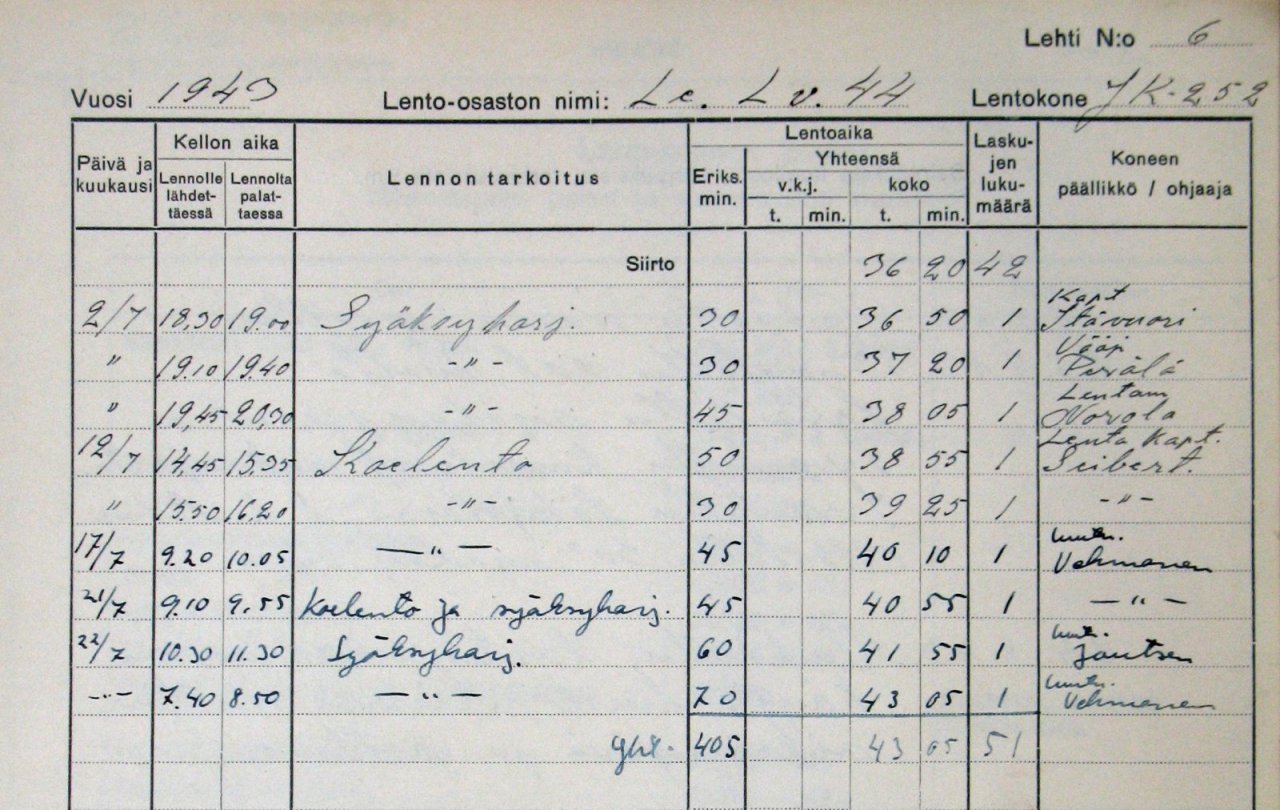 Lehti N:o 6
Vuosi 1943 Lento-osaston nimi: Le. Lv. 44 Lentokone JK-252
Päivä ja kuukausi Kellon aika Lennolle lähdet-täessä Lennolta palat-taessa Lennon tarkoitus Lentoaika Eriks. min. Yhteensä v.k.j. t. min. koko t. min. Lasku-jen luku-määrä Koneen päällikkö / ohjaaja
Siirto 36 20 42
2/7 18,30 19.00 Syöksyharj. 30 36 50 1 Kapt Itävuori
" 19.10 19.40 -"- 30 37 20 1 Vääp Perälä
" 19,45 20,30 -"- 45 38 05 1 Lentom Norola
12/7 14,45 15,35 Koelento 50 38 55 1 Lento Kapt. Seibert.
" 15.50 16,20 -"- 30 39 25 1 -"-
17/7 9.20 10.05 -"- 45 40 10 1 luutn. Vehmanen
21/7 9.10 9.55 Koelento ja syöksyharj. 45 40 55 1 -"-
22/7 10.30 11.30 Syöksyharj. 60 41 55 1 luutn. Joutsen
-"- 7.40 8.50 -"- 70 43 05 1 luutn. Vehmanen
yht. 405 43 05 51